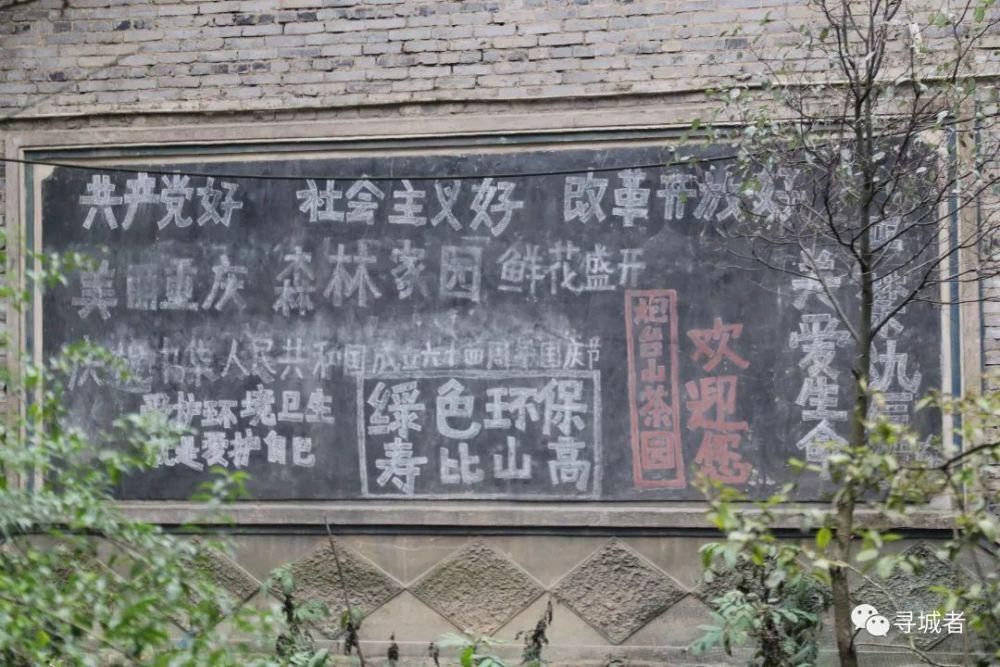 共产党好 社会主义好 改革开放好
美丽重庆 森林家园 鲜花盛开
庆祝中华人民共和国成立六十四周年国庆节
爱护环境卫生
就是爱护自己
绿色环保
寿比山高
炮台山茶园
欢迎您
共爱生命
寻城者